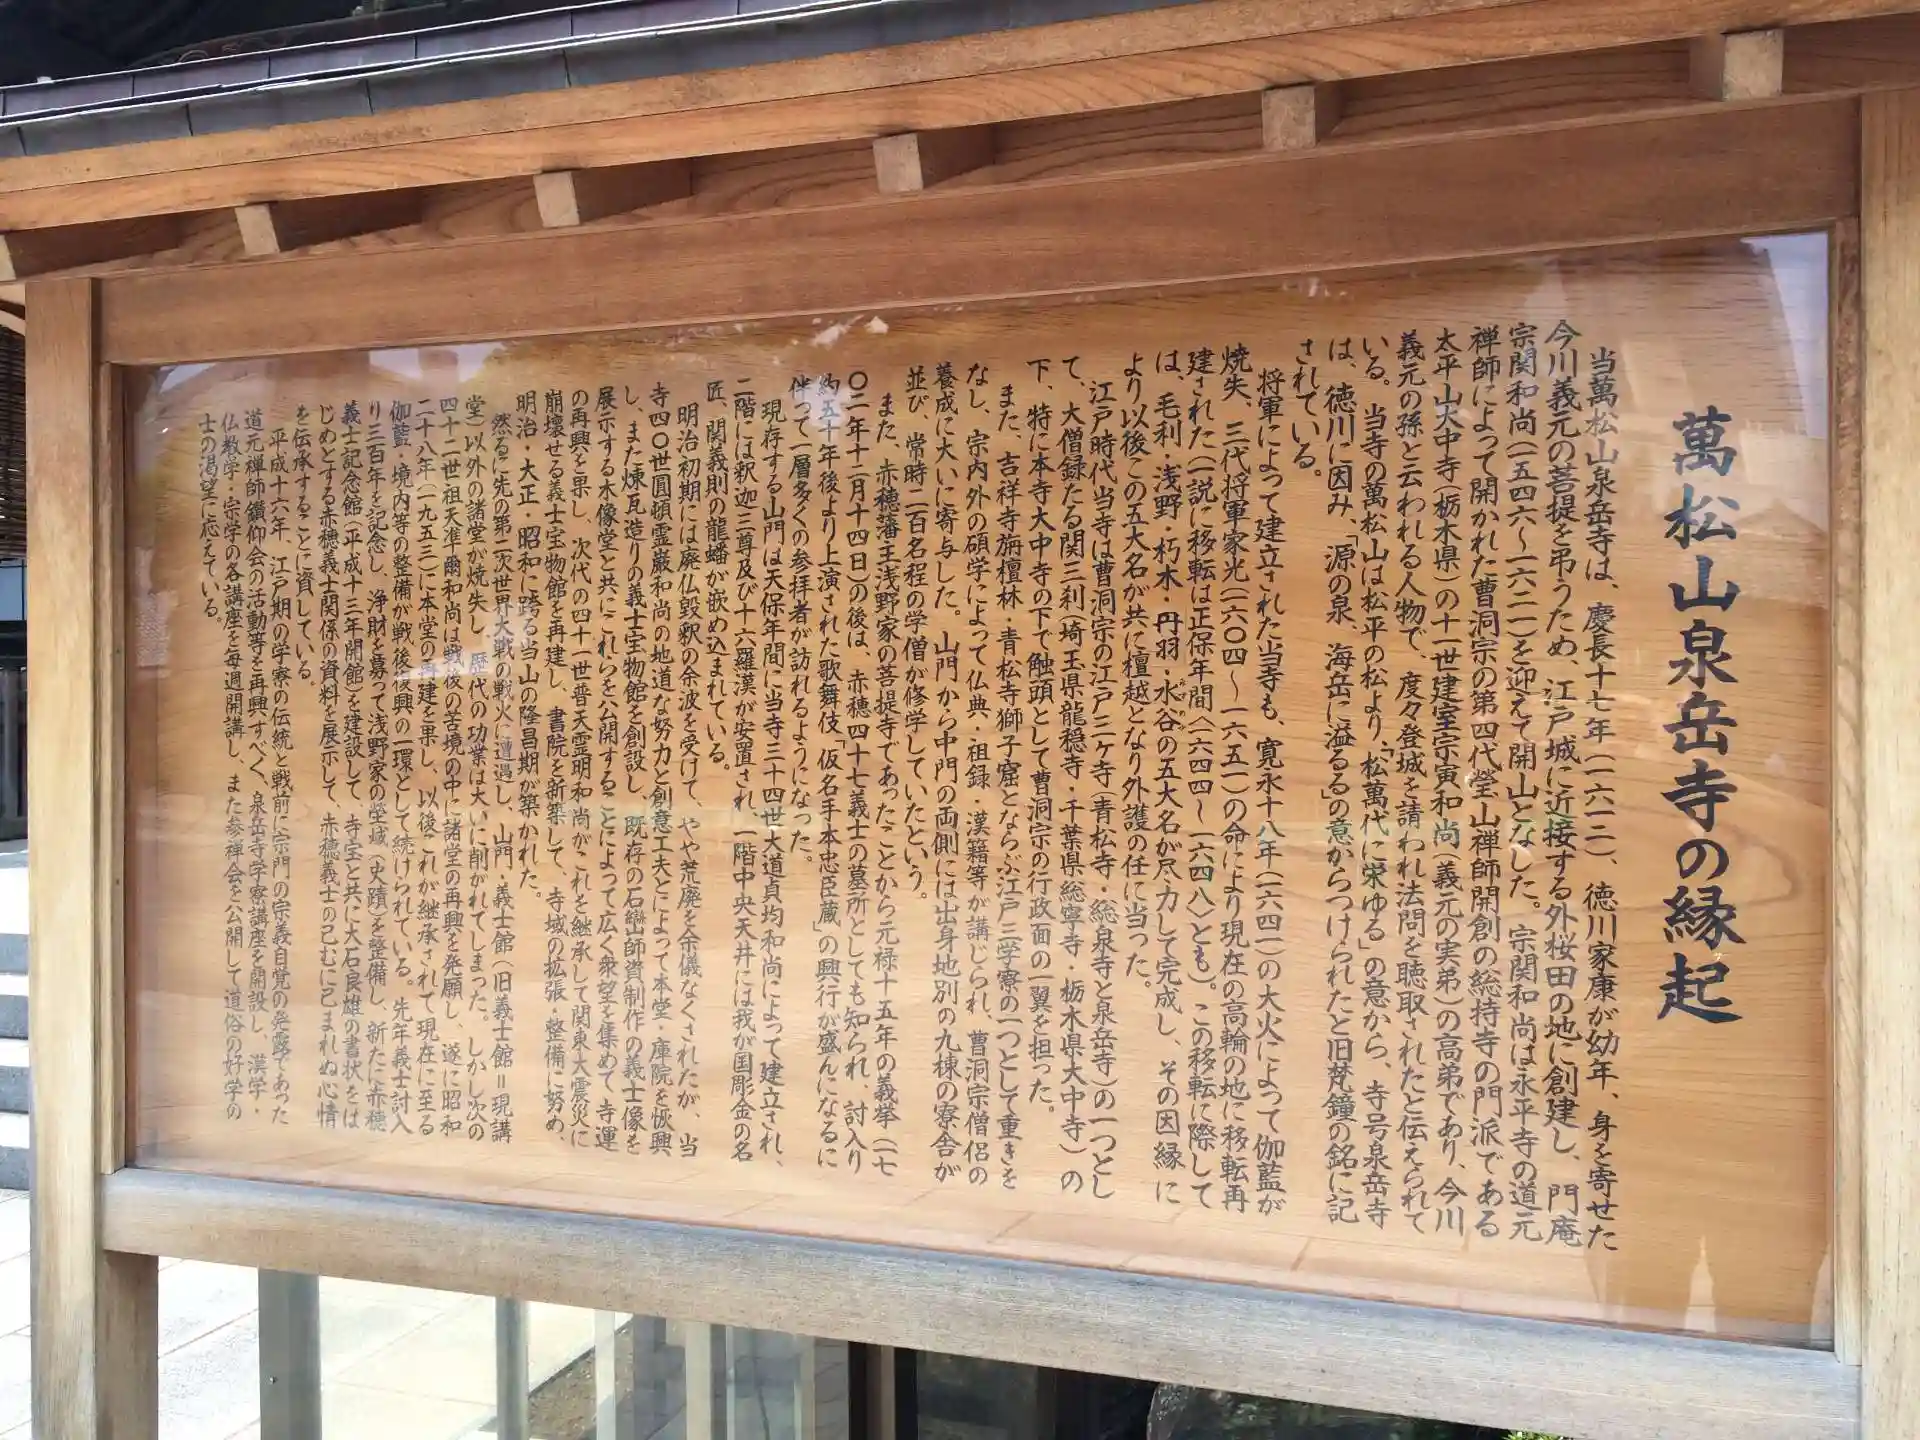 萬松山泉岳寺の縁起
当萬松山泉岳寺は、慶長十七年(一六一二)、徳川家康が幼年、身を寄せた
今川義元の菩提を弔うため、江戸城に近接する外桜田の地に創建し、門庵
宗関和尚(一五四六〜一六二一)を迎えて開山となした。宗関和尚は永平寺の道元
禅師によって開かれた曹洞宗の第四代瑩山禅師開創の総持寺の門派である
太平山大中寺(栃木県)の十一世建室宗寅和尚(義元の実弟)の高弟であり、今川
義元の孫と云われる人物で、度々登城を請われ法問を聴取されたと伝えられて
いる。当寺の萬松山は松平の松より、「松萬代に栄ゆる」の意から、寺号泉岳寺
は、徳川に因み、「源の泉、海岳に溢るる」の意からつけられたと旧梵鐘の銘に記
されている。
将軍によって建立された当寺も、寛永十八年(一六四一)の大火によって伽藍が
焼失、三代将軍家光(一六〇四〜一六五一)の命により現在の高輪の地に移転再
建された(一説に移転は正保年間〈一六四四〜一六四八〉とも)。この移転に際して
は、毛利・浅野・朽木・丹羽・水谷の五大名が尽力して完成し、その因縁に
より以後この五大名が共に檀越となり外護の任に当った。
江戸時代当寺は曹洞宗の江戸三ヶ寺(青松寺・総泉寺と泉岳寺)の一つとし
て、大僧録たる関三刹(埼玉県龍穏寺・千葉県総寧寺・栃木県大中寺)の
下、特に本寺大中寺の下で触頭として曹洞宗の行政面の一翼を担った。
また、吉祥寺旃檀林・青松寺獅子窟とならぶ江戸三学寮の一つとして重きを
なし、宗内外の碩学によって仏典・祖録・漢籍等が講じられ、曹洞宗僧侶の
養成に大いに寄与した。山門から中門の両側には出身地別の九棟の寮舎が
並び、常時二百名程の学僧が修学していたという。
また、赤穂藩主浅野家の菩提寺であったことから元禄十五年の義挙(一七
〇二年十二月十四日)の後は、赤穂四十七義士の墓所としても知られ、討入り
約五十年後より上演された歌舞伎「仮名手本忠臣蔵」の興行が盛んになるに
伴って一層多くの参拝者が訪れるようになった。
現存する山門は天保年間に当寺三十四世大道貞均和尚によって建立され、
二階には釈迦三尊及び十六羅漢が安置され、一階中央天井には我が国彫金の名
匠、関義則の龍蟠が嵌め込まれている。
明治初期には廃仏毀釈の余波を受けて、やや荒廃を余儀なくされたが、当
寺四〇世圓頓霊巌和尚の地道な努力と創意工夫とによって本堂・庫院を恢興
し、また煉瓦造りの義士宝物館を創設し、既存の石巒師資制作の義士像を
展示する木像堂と共にこれらを公開することによって広く衆望を集めて、寺運
の再興を果し、次代の四十一世普天霊明和尚がこれを継承して関東大震災に
崩壊せる義士宝物館を再建し、書院を新築して、寺域の拡張・整備に努め、
明治・大正・昭和に跨る当山の隆昌期が築かれた。
然るに先の第二次世界大戦の戦火に遭遇し、山門・義士館(旧義士館=現講
堂)以外の諸堂が焼失し、歴代の功業は大いに削がれてしまった。しかし次の
四十二世祖天準爾和尚は戦後の苦境の中に諸堂の再興を発願し、遂に昭和
二十八年(一九五三)に本堂の再建を果し、以後これが継承されて現在に至る
伽藍・境内等の整備が戦後復興の一環として続けられている。先年義士討入
り三百年を記念し、浄財を募って浅野家の塋域(史蹟)を整備し、新たに赤穂
義士記念館(平成十三年開館)を建設して、寺宝と共に大石良雄の書状をは
じめとする赤穂義士関係の資料を展示して、赤穂義士の已むに已まれぬ心情
を伝承することに資している。
平成十六年、江戸期の学寮の伝統と戦前に宗門の宗義自覚の発露であった
道元禅師鑽仰会の活動等を再興すべく、泉岳寺学寮講座を開設し、漢学・
仏教学・宗学の各講座を毎週開講し、また参禅会を公開して道俗の好学の
士の渇望に応えている。